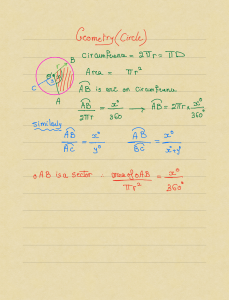 Geometry (Circle)
B
Circumference = 2πr = πD
Area = πr²
C
A
AB is arc on Circumference
AB/2πr = x°/360 → AB = 2πr × x°/360°
Similarly
AB/AC = x°/y° AB/BC = x°/x°+y°
OAB is a sector area of OAB/πr² = x°/360°